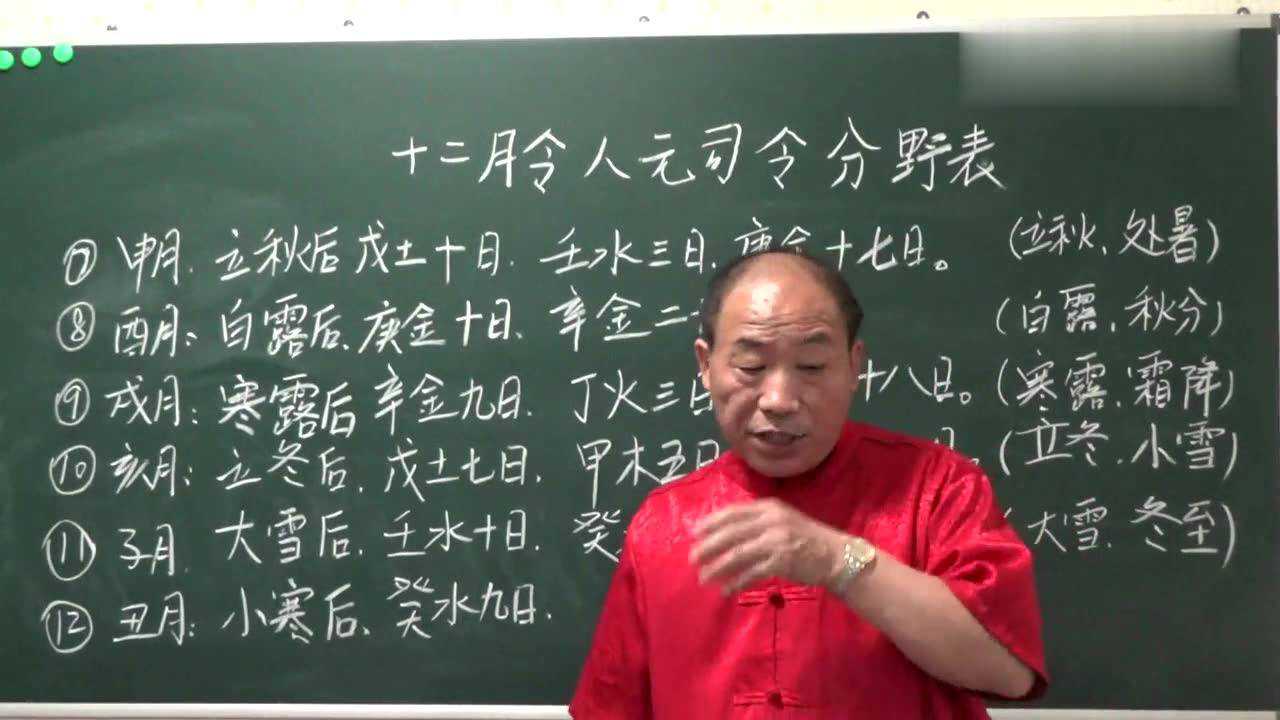 十二月令人元司令分野表
⑦ 申月. 立秋后戊土十日. 壬水三日. 庚金十七日。 (立秋. 处暑)
⑧ 酉月: 白露后. 庚金十日. 辛金二 (白露. 秋分)
⑨ 戌月: 寒露后 辛金九日. 丁火三日 十八日。(寒露. 霜降)
⑩ 亥月: 立冬后. 戊土七日. 甲木五日 日. (立冬. 小雪)
⑪ 子月. 大雪后. 壬水十日. 癸 (大雪. 冬至)
⑫ 丑月: 小寒后. 癸水九日.